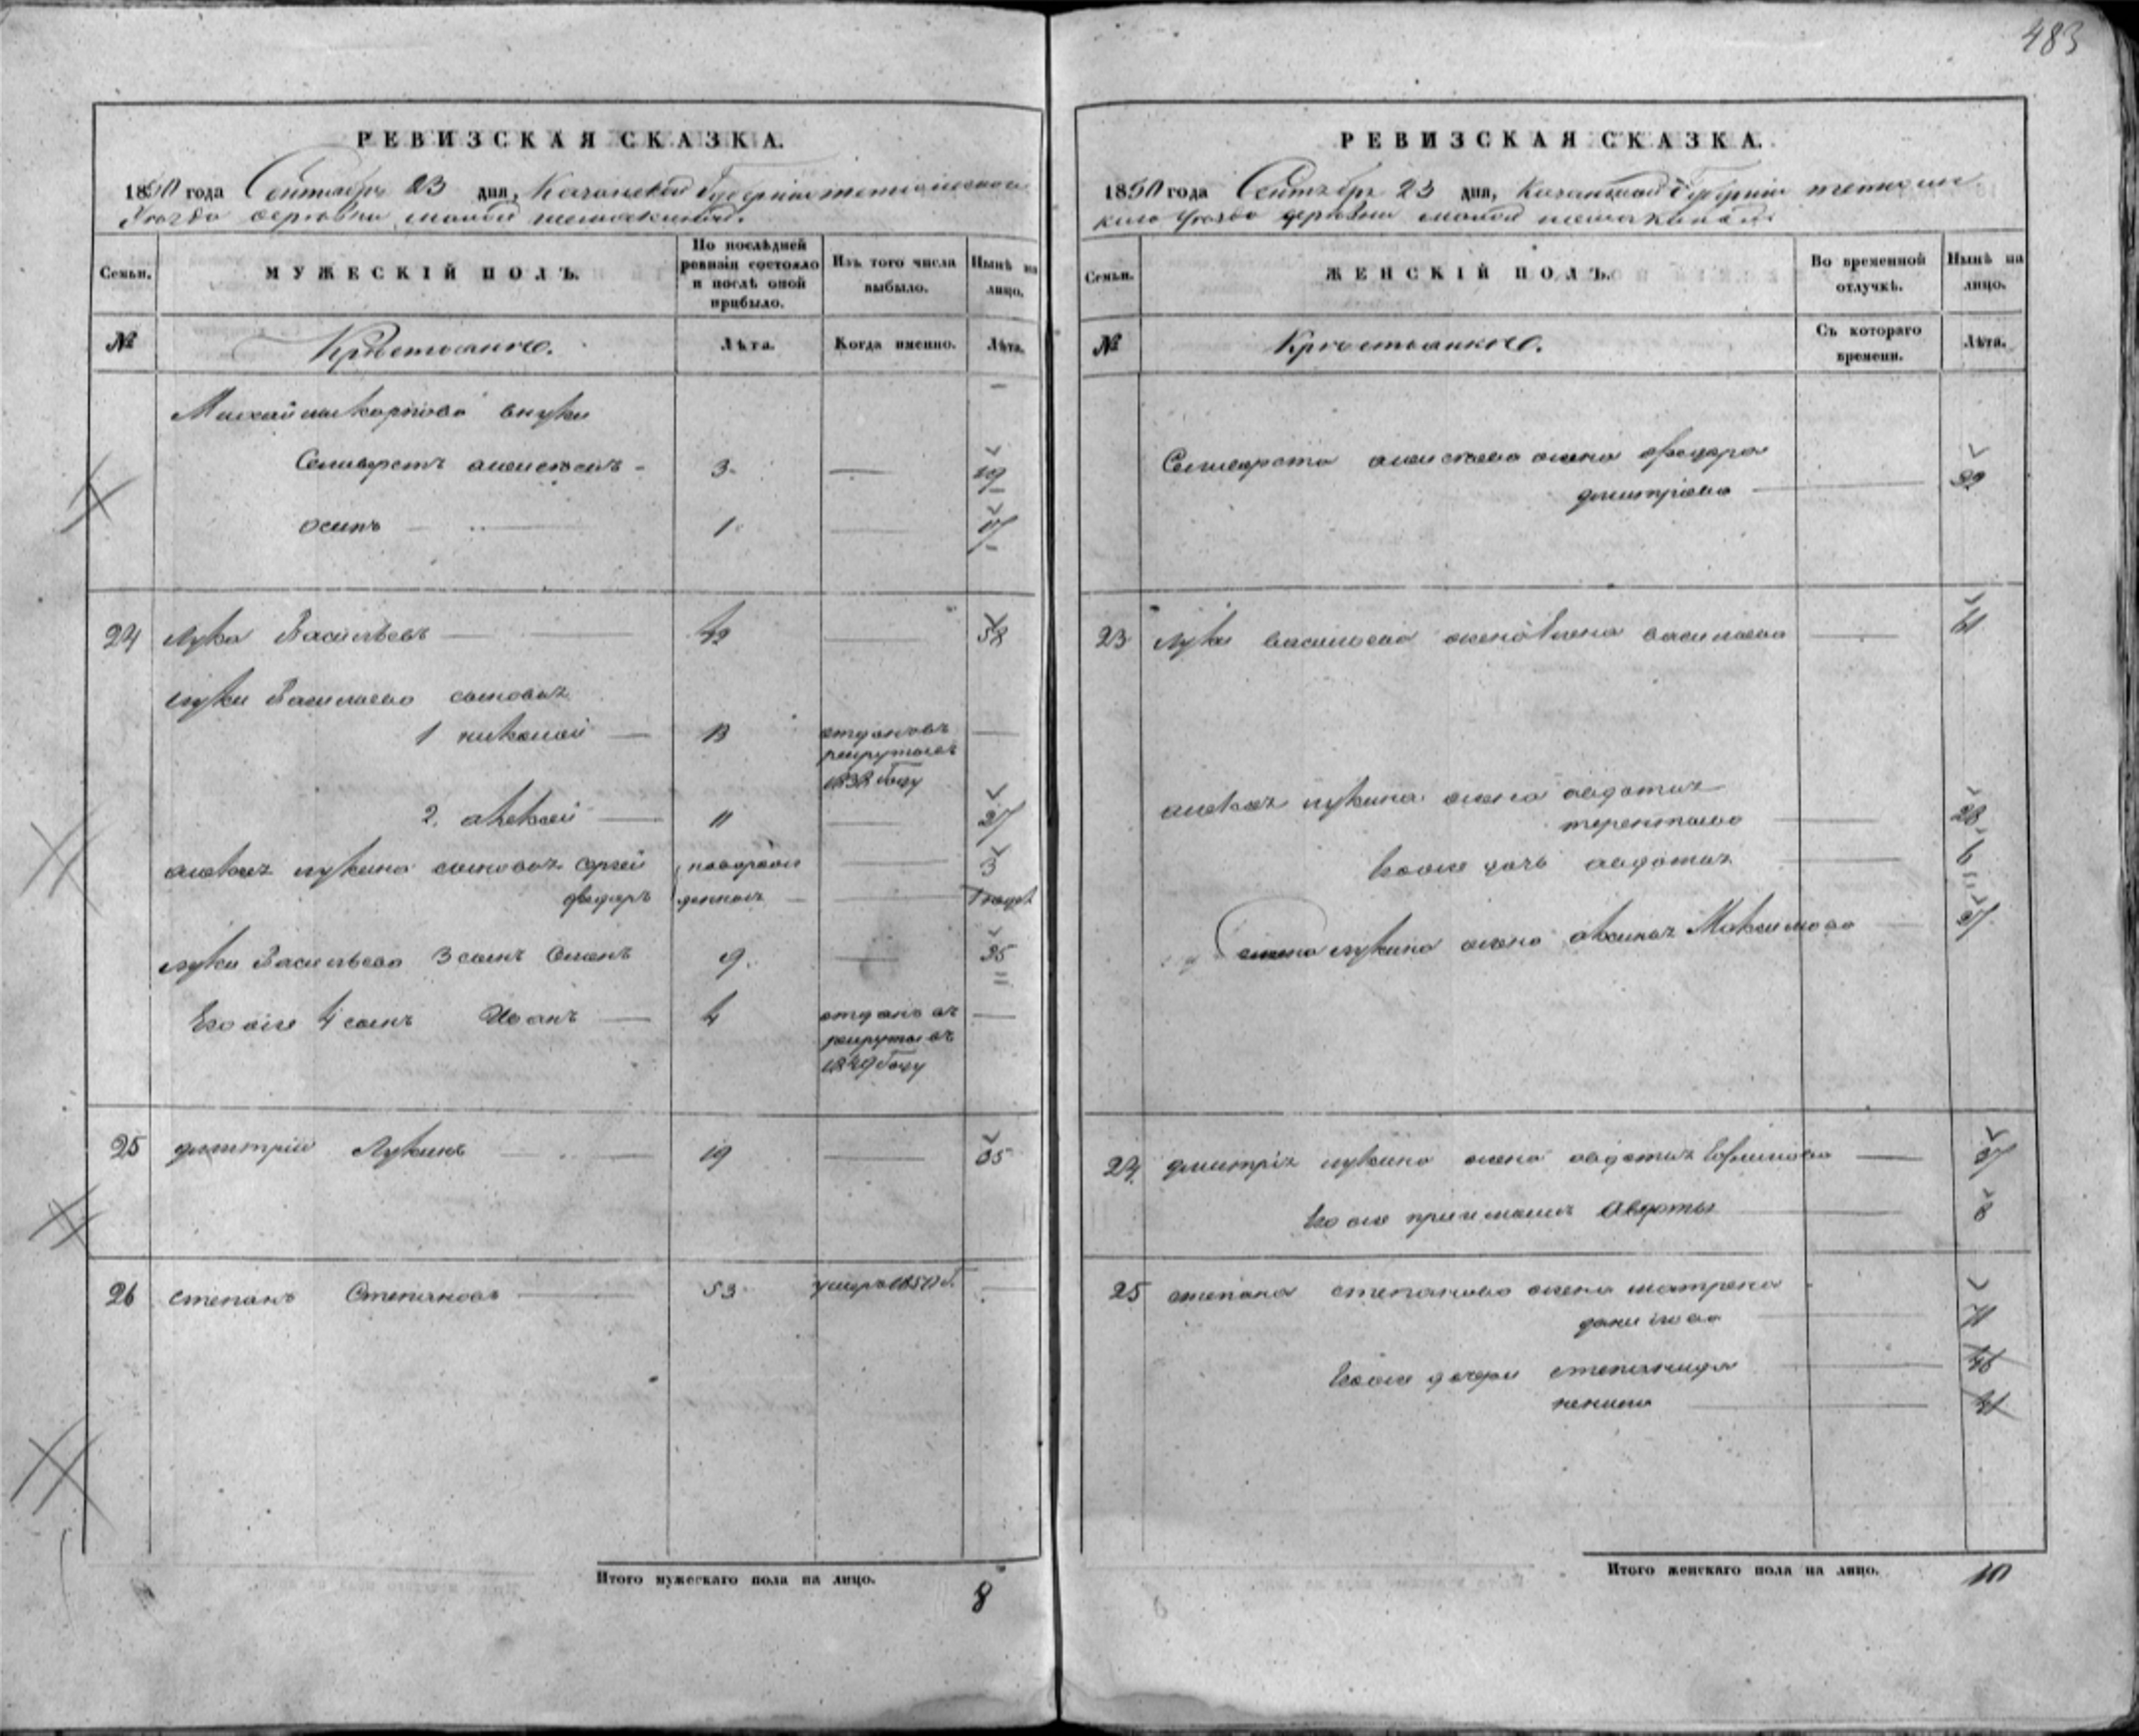 483
РЕВИЗСКАЯ СКАЗКА.
1850 года Сентября 23 дня, Казанской Губернии тетюшскаго
Уезда деревни малой
Семьи. МУЖЕСКІЙ ПОЛЪ. По послѣдней ревизіи состояло и послѣ оной прибыло. Изъ того числа выбыло. Нынѣ на лицо.
№ Крестьяне. Лѣта. Когда именно. Лѣта.
Михайлы карпова внуки
Селиверстъ алексеевъ 3 19
осипъ 1 17
24 лука Васильевъ 42 58
луки Васильева сыновья
1 николай 13 отданъ въ
рекруты въ
1838 году
2. алексей 11 27
алексея лукина сыновья сергей новорож 3
федоръ денныя 1 годъ
луки Васильева 3 сынъ семенъ 9 25
Его же 4 сынъ Иванъ 4 отданъ въ
рекруты въ
1849 году
25 дмитрий Лукинъ 19 35
26 степанъ Степановъ 53 умеръ 1850 г.
Итого мужескаго пола на лицо. 8
РЕВИЗСКАЯ СКАЗКА.
1850 года Сентября 23 дня, Казанской Губернии тетюш
скаго Уезда деревни малой
Семьи. ЖЕНСКІЙ ПОЛЪ. Во временной отлучкѣ. Нынѣ на лицо.
№ Крестьянкие. Съ котораго времени. Лѣта.
Селиверста алексеева жена федора
дмитриева
23 луки васильева жена Елена васильева 61
алексея лукина жена авдотья
терентьева 28
Его же дочь авдотья 6
семена лукина жена аксинья Максимова 27
24 дмитрия лукина жена авдотья Ефимова 37
Его же приемышъ Авдотья 8
25 степана степанова жена матрена
данилова 71
Его же дочери степанида 46
ненила
Итого женскаго пола на лицо. 10